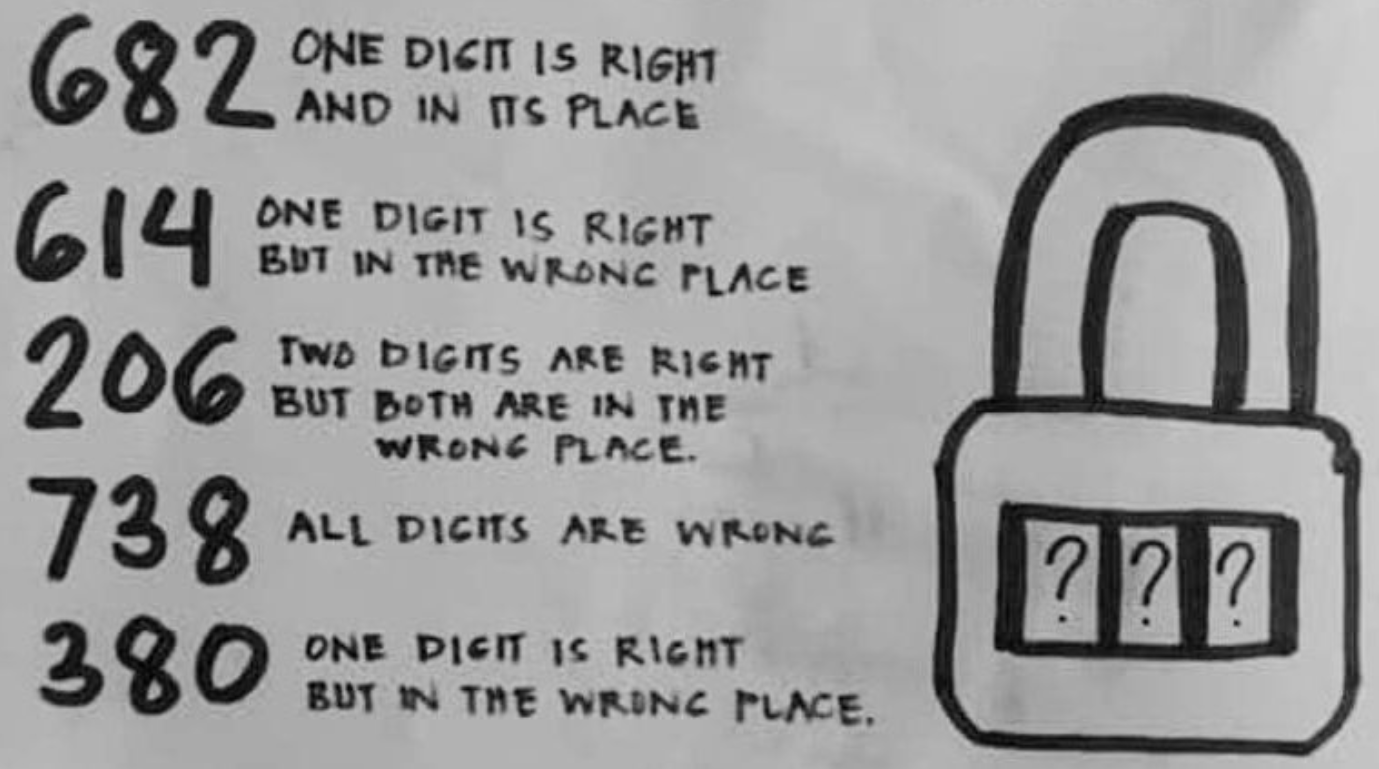 682 ONE DIGIT IS RIGHT
AND IN ITS PLACE
614 ONE DIGIT IS RIGHT
BUT IN THE WRONG PLACE
206 TWO DIGITS ARE RIGHT
BUT BOTH ARE IN THE
WRONG PLACE.
738 ALL DIGITS ARE WRONG
380 ONE DIGIT IS RIGHT
BUT IN THE WRONG PLACE.
? ? ?